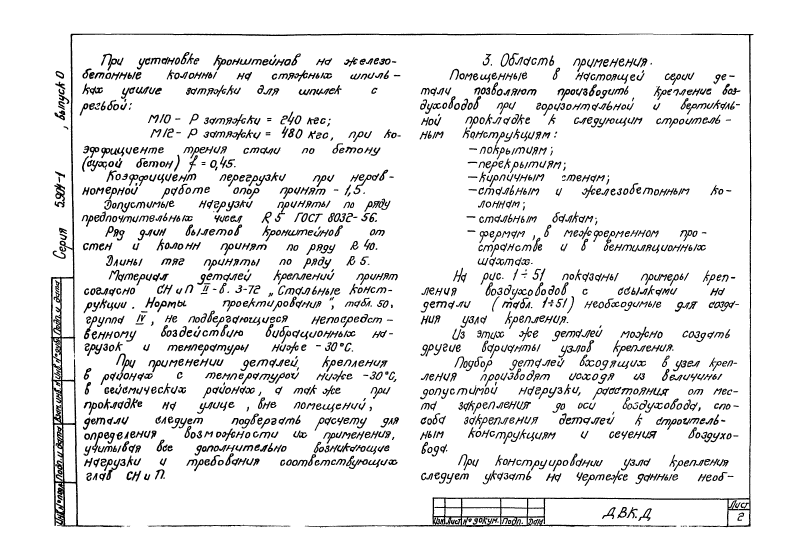 При установке кронштейнов на железо-
бетонные колонны на стяжных шпиль-
ках усилие затяжки для шпилек с
резьбой:
М10 - Р затяжки = 240 кгс;
М12 - Р затяжки = 480 кгс, при ко-
эффициенте трения стали по бетону
(сухой бетон) f = 0,45.
Коэффициент перегрузки при нерав-
номерной работе опор принят - 1,5.
Допустимые нагрузки приняты по ряду
предпочтительных чисел R 5 ГОСТ 8032-56.
Ряд длин вылетов кронштейнов от
стен и колонн принят по ряду R 40.
Длины тяг приняты по ряду R 5.
Материал деталей креплений принят
согласно СН и П II-В. 3-72 „Стальные конст-
рукции. Нормы проектирования", табл. 50,
группа IV, не подвергающиеся непосредст-
венному воздействию вибрационных на-
грузок и температуры ниже -30°С.
При применении деталей, крепления
в районах с температурой ниже -30°С,
в сейсмических районах, а так же при
прокладке на улице, вне помещений,
детали следует подвергать расчету для
определения возможности их применения,
учитывая все дополнительно возникающие
нагрузки и требования соответствующих
глав СН и П.
3. Область применения.
Помещенные в настоящей серии де-
тали позволяют производить крепление воз-
духоводов при горизонтальной и вертикаль-
ной прокладке к следующим строитель-
ным конструкциям:
- покрытиям;
- перекрытиям;
- кирпичным стенам;
- стальным и железобетонным ко-
лоннам;
- стальным балкам;
- фермам, в межферменном про-
странстве и в вентиляционных
шахтах.
На рис. 1÷51 показаны примеры креп-
ления воздуховодов с ссылками на
детали (табл. 1÷51) необходимые для созда-
ния узла крепления.
Из этих же деталей можно создать
другие варианты узлов крепления.
Подбор деталей входящих в узел креп-
ления производят исходя из величины
допустимой нагрузки, расстояния от мес-
та закрепления до оси воздуховода, спо-
соба закрепления деталей к строитель-
ным конструкциям и сечения воздухо-
вода.
При конструировании узла крепления
следует указать на чертеже данные необ-
Серия 5.904-1, выпуск 0
Инв. № подл. Подп. и дата Взам. инв. № Инв. № дубл. Подп. и дата
Изм. Лист № докум. Подп. Дата
ДВК.Д
Лист
2